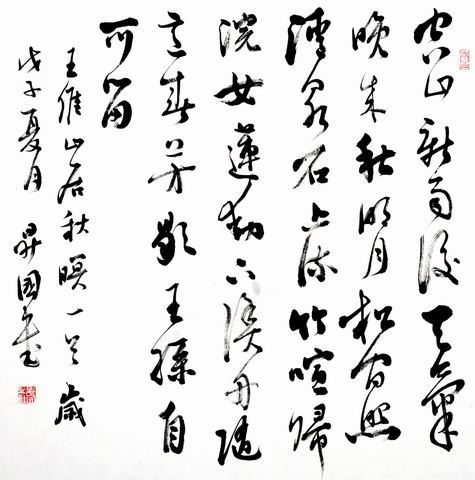 空山新雨後天氣
晚来秋明月松间照
清泉石上流竹喧歸
浣女蓮動下渔舟随
意春芳歇王孫自
可留
王維山居秋暝一首歲
戊子夏月昇國